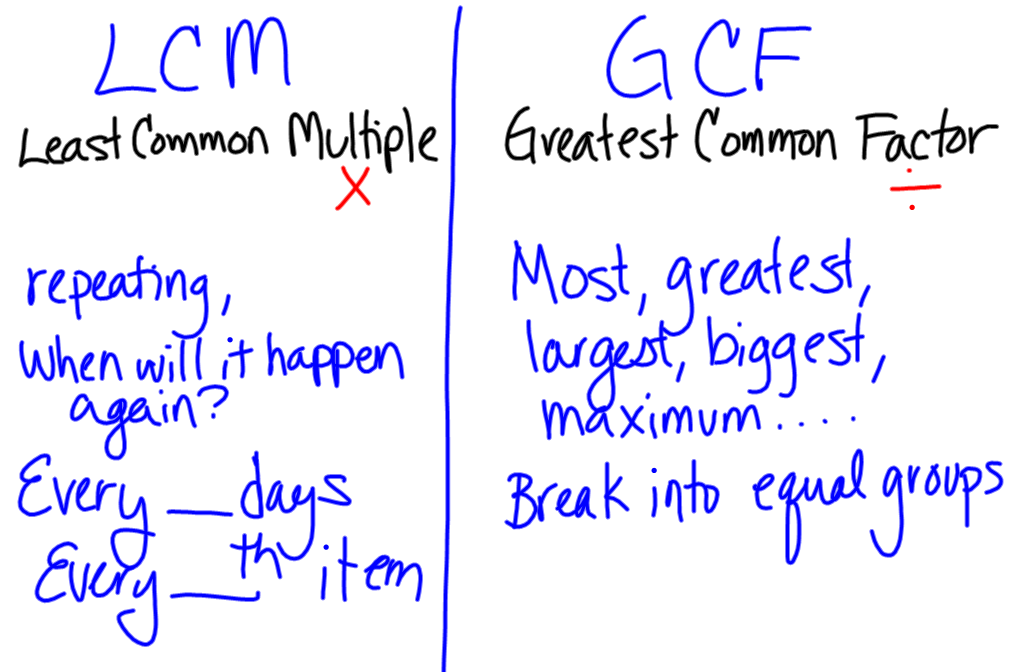 LCM
Least Common Multiple
X
repeating,
When will it happen
again?
Every ___ days
Every ___th item
GCF
Greatest Common Factor
÷
Most, greatest,
largest, biggest,
maximum....
Break into equal groups